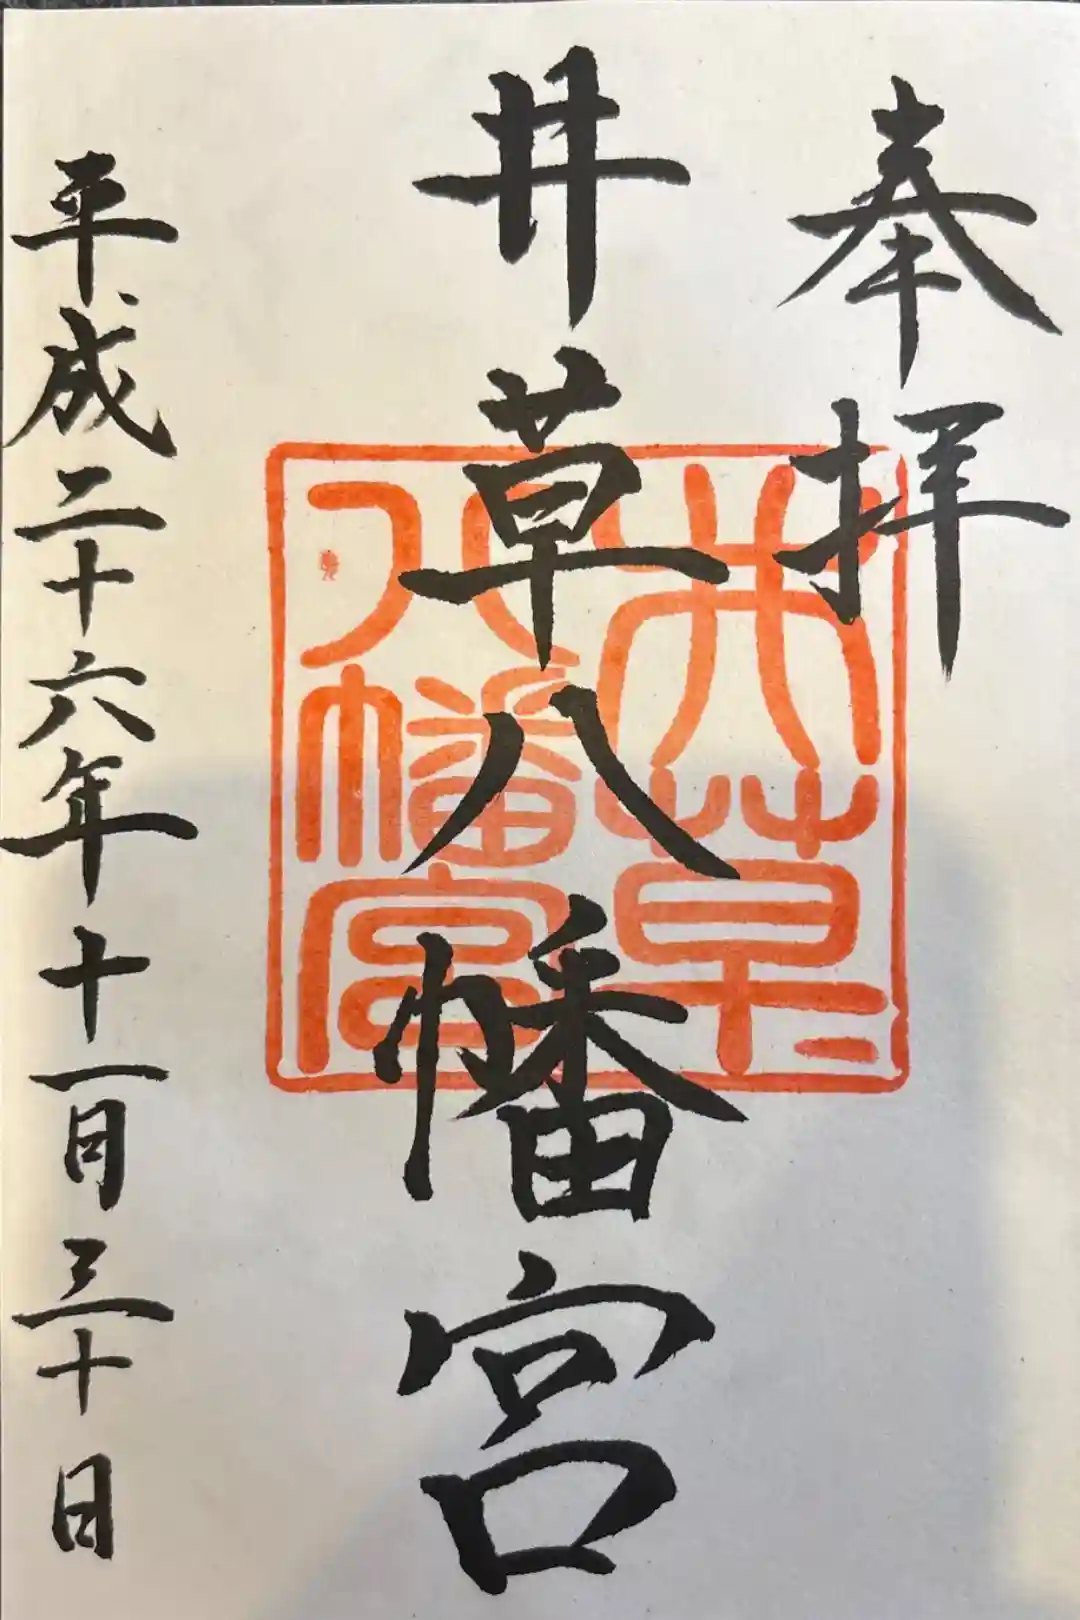 奉拝
井草八幡宮
平成二十六年十一月三十日
井草
八幡宮